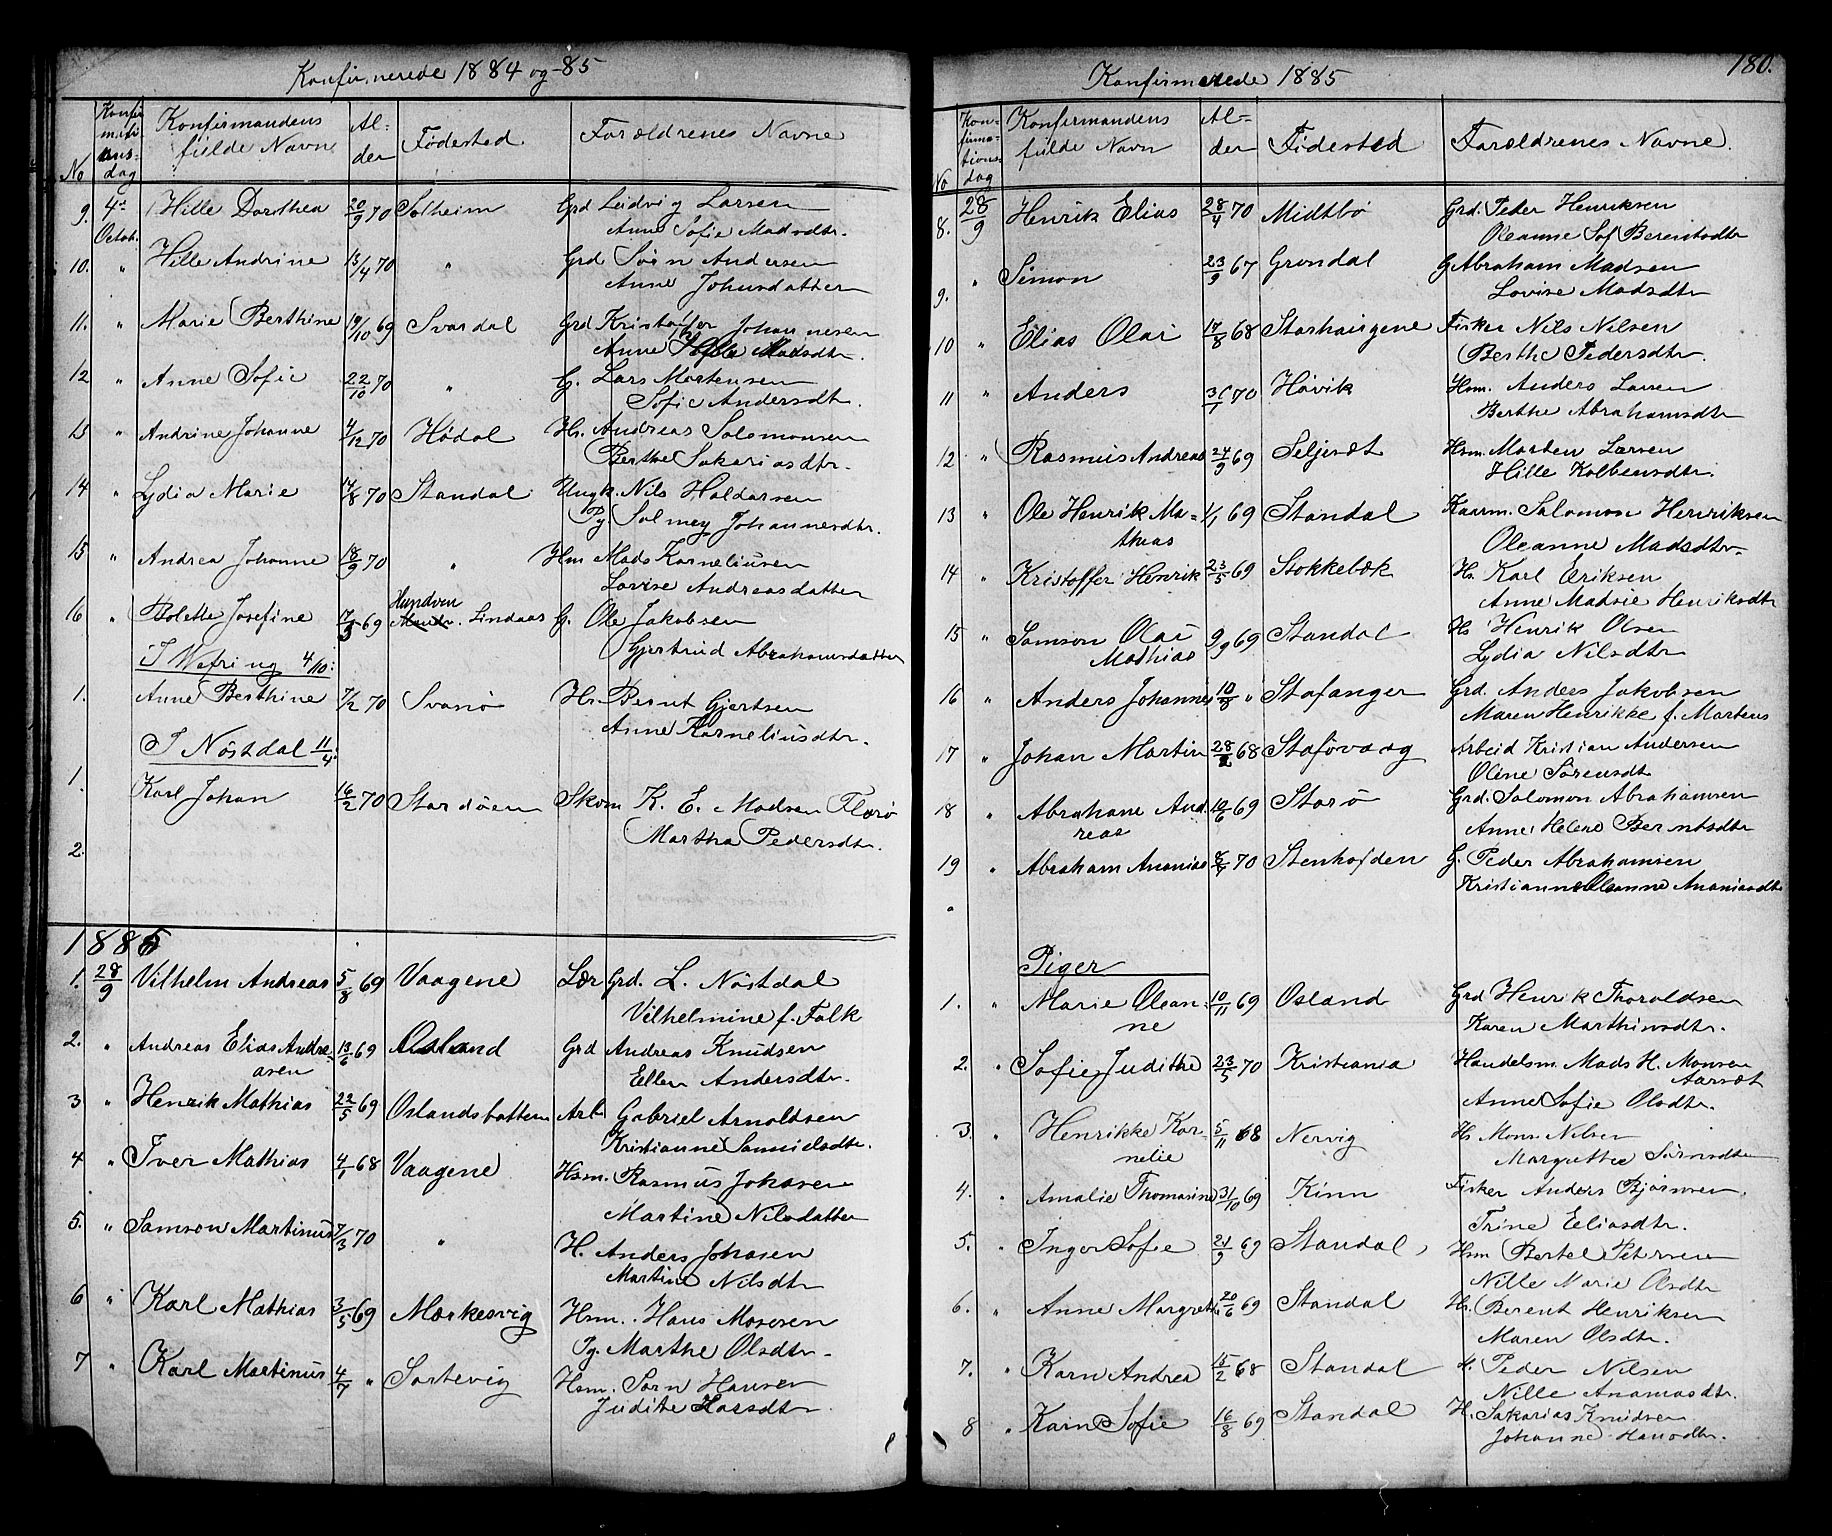 Konfirmerede 1884 og 85
No Konfirmationsdag Konfirmandens fulde Navn Alder Fødested Foroldrenes Navne
9. 4de Octob. Hille Dorthea 20/9 70 Solheim Grd Ludvig Larsen
Anne Sofie Madsdtr.
10. " Hille Andrine 13/4 70 " Grd Sørn Andersen
Anne Johnsdatter
11. " Marie Berthine 19/10 69 Svardal Grd Kristoffer Johannesen
Anne Madsdtr.
12 " Anne Sofie 22/10 70 " G. Lars Mortensen
Sofie Andersdt.
13 " Andrine Johanne 4/12 70 Hødal Hs. Andreas Salomonsen
Berthe Sakariasdtr.
14 " Lydia Marie 14/8 70 Standal Ungk. Nils Haldorsen
Pg. Solmey Johannesdtr.
15 " Andrea Johanne 18/9 70 " Hm Mads Korneliusen
Lovise Andreasdatter
16 " Bolette Josefine 17/3 69 Hundven Lindaas G. Ole Jakobsen
Gjertrud Abrahamsdatter
I Wefring 4/10:
1. Anne Berthine 7/2 70 Svanø Hs. Bernt Gjertsen
Anne Korneliusdtr.
I Nöstdal 11/4:
1. Karl Johan 16/2 70 Stardøen Skom K. E. Madsen Florø
Martha Pedersdtr.
2.
1885
1. 28/9 Vilhelm Andreas 5/8 69 Vaagene Lær Grd. L. Nöstdal
Vilhelmine f. Falk
2. " Andreas Elias Andre- 13/6 69 Osland Grd Andreas Knudsen
asen Ellen Andersdtr.
3 " Henrik Mathias 22/5 69 Oslandsbotten Arb Gabriel Arnoldsen
Kristianne Samuelsdtr.
4 " Iver Mathias 4/1 68 Vaagene Hsm. Rasmus Johasen
Martine Nilsdatter
5. " Samson Martinus 7/3 70 " H. Anders Johasen
Martine Nilsdtr
6 " Karl Mathias 3/5 69 Mærkesvig Hsm. Hans Mosesen
Pg. Marthe Olsdtr.
7 " Karl Martinus 4/7 " Sortevig Hsm. Sørn Hansen
Judite Hansdtr.
Konfirmerede 1885 180.
No Konfirmationsdag Konfirmandens fulde Navn Alder Fødested Foroldrenes Navne.
8. 28/9 Henrik Elias 28/4 70 Midtbø Grd. Peder Henriksen
Oleanne Sof Berentsdtr
9. " Simon 23/9 67 Grøndal G Abraham Madsen
Lovise Madsdtr
10 " Elias Olai 17/8 68 Storhaugene Fisker Nils Nilsen
Berthe Pedersdtr.
11 " Anders 70 Høvik Hsm. Anders Larsen
Berthe Abrahamsdtr
12 " Rasmus Andreas 24/9 69 Seljesæt Hsm. Morten Larsen
Hille Kolbensdtr.
13 " Ole Henrik Ma= 1/1 69 Standal Kaarm. Salomon Henriksen
thias Oleanne Madsdtr
14 " Kristoffer Henrik 23/5 69 Stokkebæk Hs. Karl Eriksen
Anne Madsie Henriksdtr
15 " Samson Olai 9/9 69 Standal Hs Henrik Olsen
Mathias Lydia Nilsdtr
16 " Anders Johannes 10/8 " Stafanger Grd. Anders Jakobsen
Maren Henrikke f. Martens
17 " Johan Martin 28/2 68 Staføvaag Arbeid Kristian Andersen
Oline Sørensdt
18 " Abrahane And 10/6 69 Storø Grd. Salomon Abrahamsen
reas Anne Helene Berntsdtr
19 " Abraham Ananias 70 Stenhofden G. Peder Abrahamsen
Kristianne Oleanne Ananiasdtr
Piger
1. " Marie Olean= 10/11 69 Osland Grd Henrik Thoroldsen
ne Karen Marthinsdtr.
2. " Sofie Judithe 23/5 70 Kristiania Handelsm. Mads H. Monsen
Aarsæt
Anne Sofie Olsdtr.
3. " Henrikke Kor= 5/11 68 Nervig Hs Mons Nilsen
nelie Margrethe Sørnsdtr
4. " Amalie Thomasine 31/10 69 Kinn Fisker Anders Bjørnsen.
Trine Eeliasdtr.
5. " Inger Sofie 21/9 69 Standal, Hsm Bertel Petersen
Nille Marie Olsdtr
6. " Anne Margrete 20/6 69 Standal Hs. Berent Henriksen
Maren Olsdtr.
7. " Karn Andrea 15/2 68 Standal H. Peder Nilsen
Nille Ananiasdtr.
8 " Karn Sofie 16/8 69 Standal H. Sakarias Knudsen
Johanne Hansdtr.